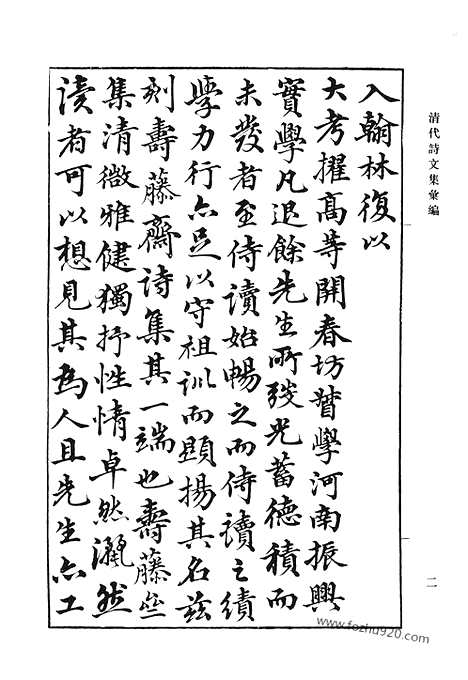 清代詩文集彙編
二
入翰林復以
大考擢高等開春坊督學河南振興
實學凡退餘先生所韜光蓄德積而
未發者至侍讀始暢之而侍讀之績
學力行亦足以守祖訓而顯揚其名茲
刻壽藤齋詩集其一端也壽藤
集清微雅健獨抒性情卓然灑然
讀者可以想見其為人且先生亦工
www.fozhu920.com